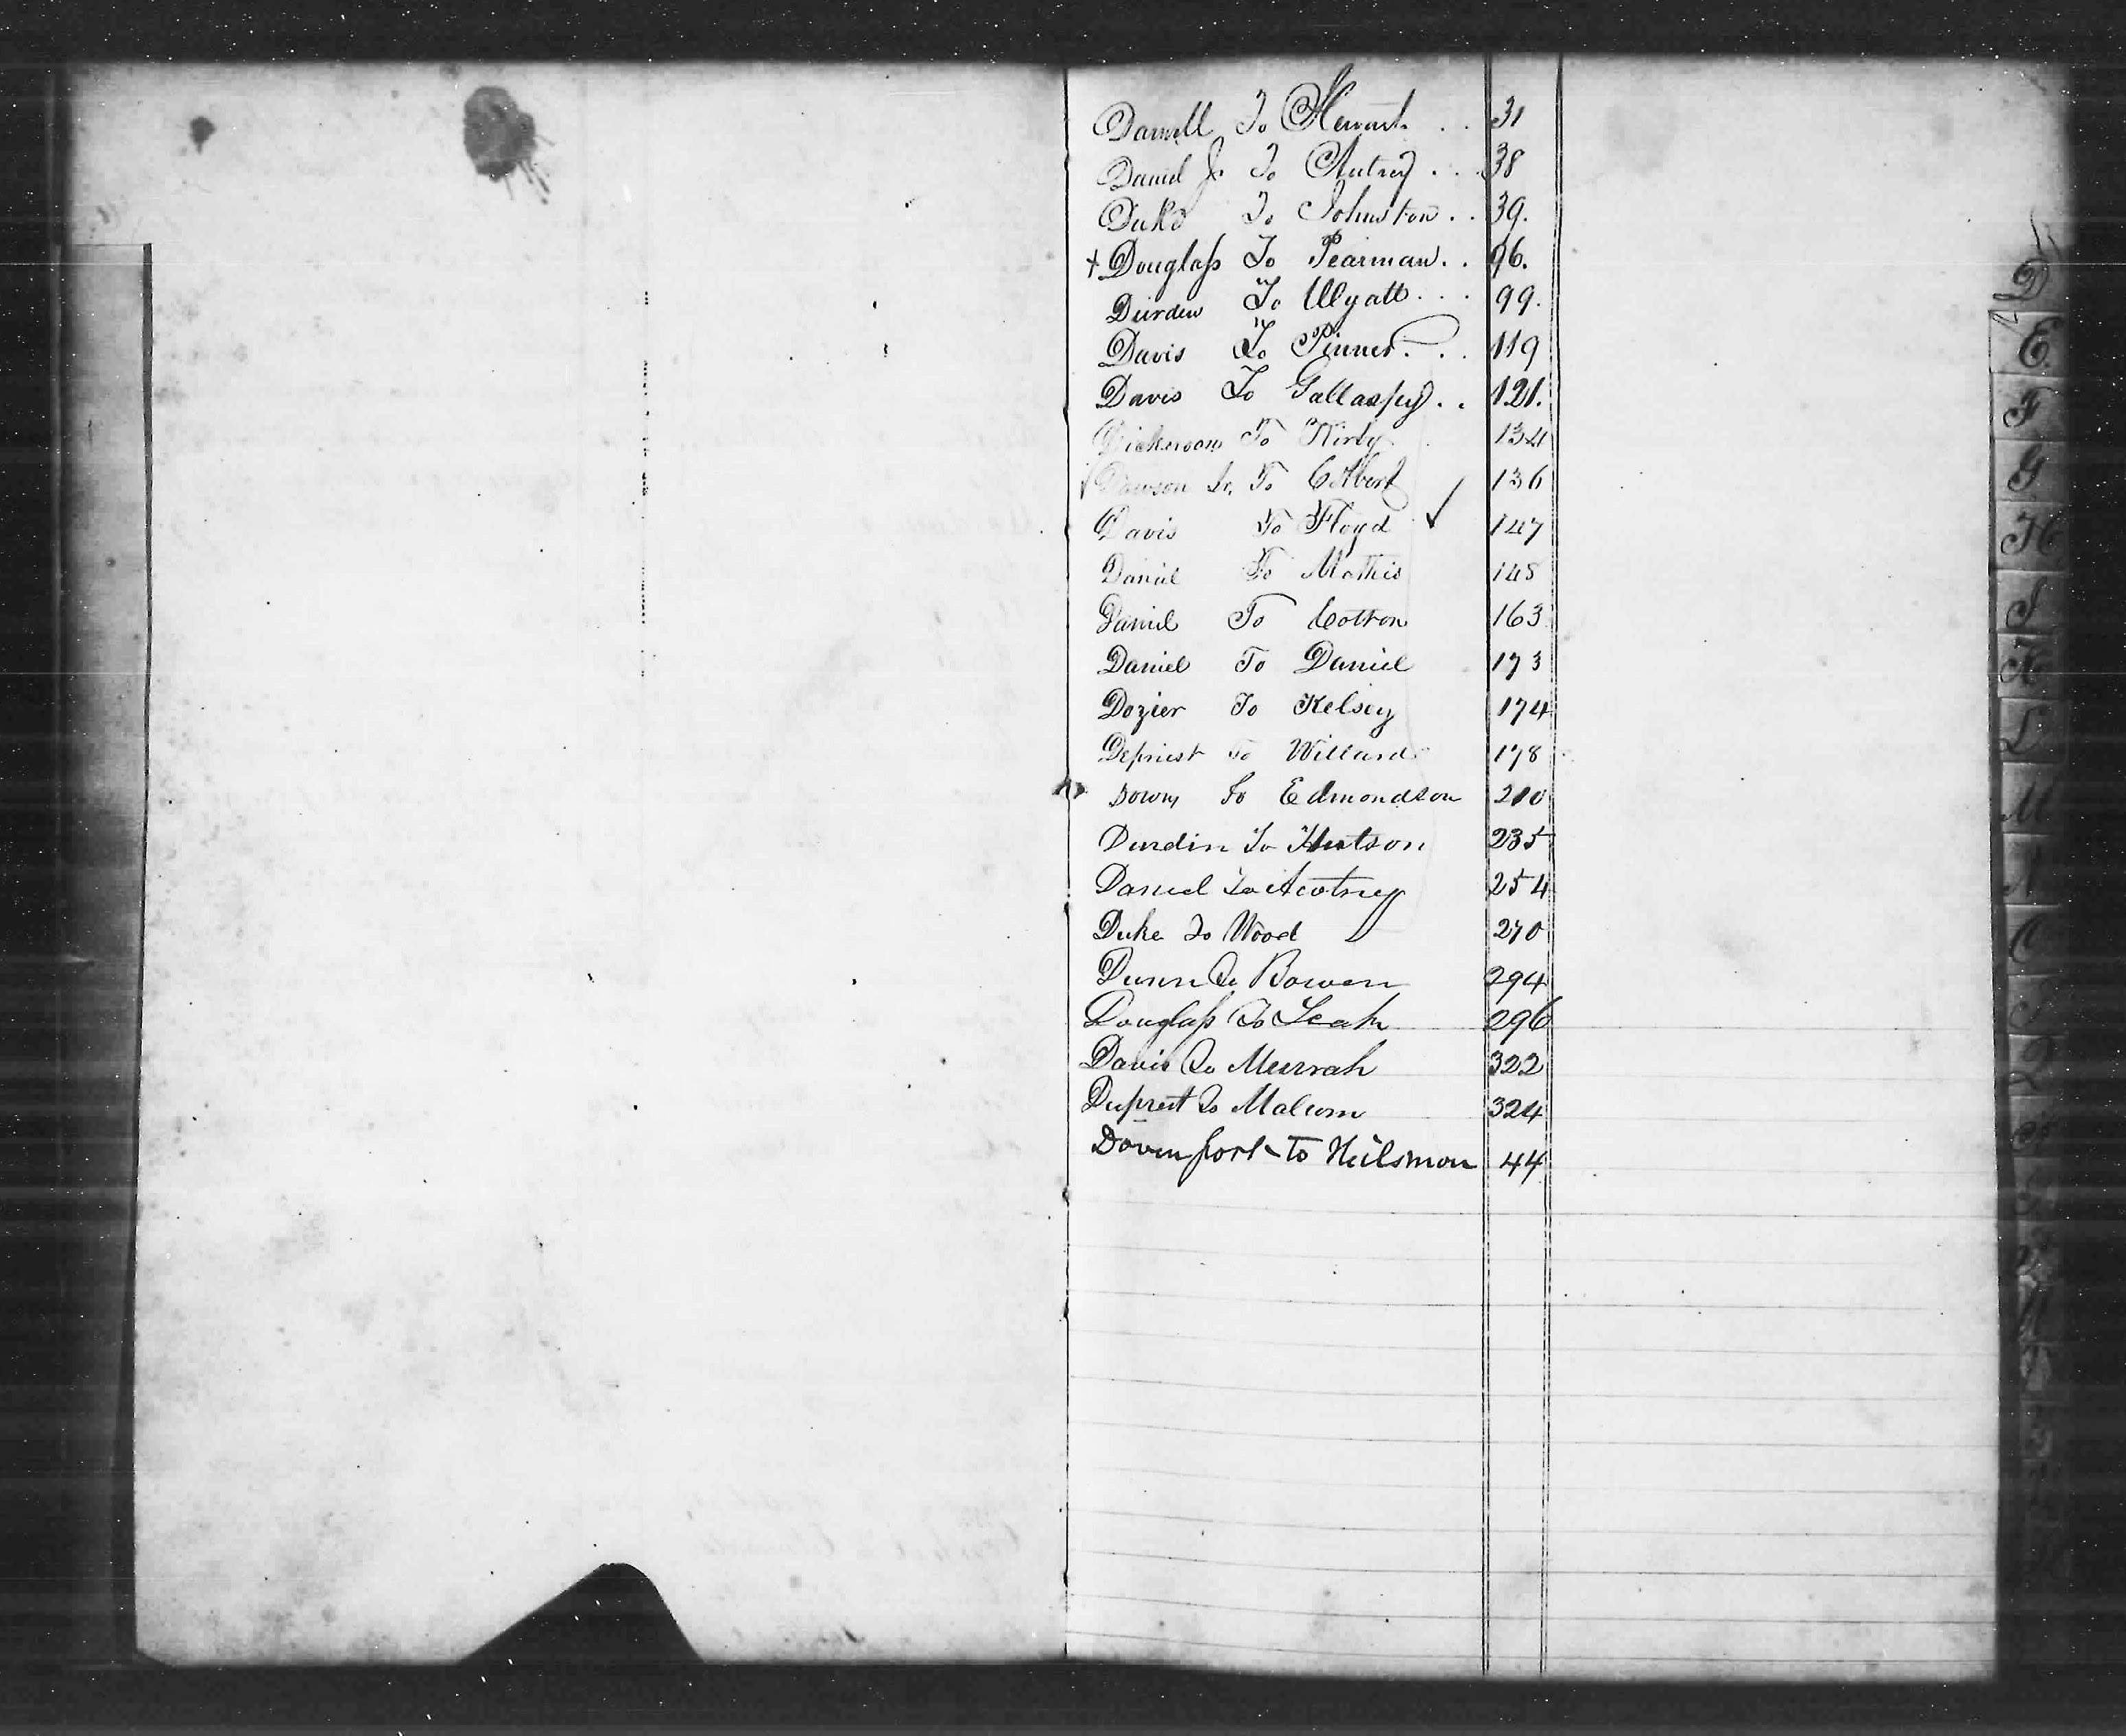 Darnell To Stewart . . 31
Daniel Jr To Autrey . . . 38
Duke To Johnston . . 39.
+ Douglass To Pearman . . 96.
Durden To Wyatt . . . 99.
Davis To Pinner . . . 119
Davis To Gallaspy . . 121.
Dickerson To Kirby . 134
✓ Dawson To Colbert 136
Davis To Floyd ✓ 147
Daniel To Mathis 148
Daniel To Cotton 163
Daniel To Daniel 173
Dozier To Kelsey 174
Depriest To Willard 178
Down To Edmondson 210
Durdin To Hutson 235
Daniel To 254
Duke To Wood 270
Dunn To Bowen 294
Douglass To Leak 296
Davis To Murrah 322
Duprest To Malcom 324
Davenport to 44
D
E
F
G
H
I
K
L
M
N
O
P
Q